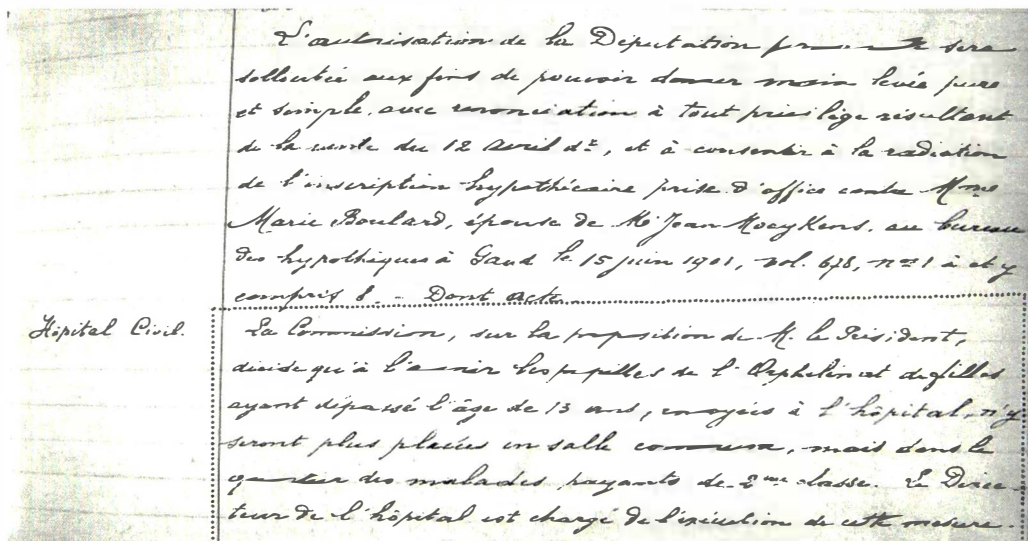 L'autorisation de la Députation sera
sollicitée aux fins de pouvoir donner main levée pure
et simple, avec renonciation à tout privilège résultant
de la vente du 12 avril dt, et à consentir à la radiation
de l'inscription hypothécaire prise d'office contre Mme
Marie Boulard, épouse de Mr Jean Moeykens, au bureau
des hypothèques à Gand le 15 juin 1901, vol. 678, no 1 à et y
compris 8. - Dont acte.
Hôpital Civil.
La Commission, sur la proposition de M. le Président,
décide qu'à l'avenir les pupilles de l'Orphelinat de filles
ayant dépassé l'âge de 13 ans, envoyées à l'hôpital, n'y
seront plus placées en salle commune, mais dans le
quartier des malades payants de 2me classe. Le Direc-
teur de l'hôpital est chargé de l'exécution de cette mesure.